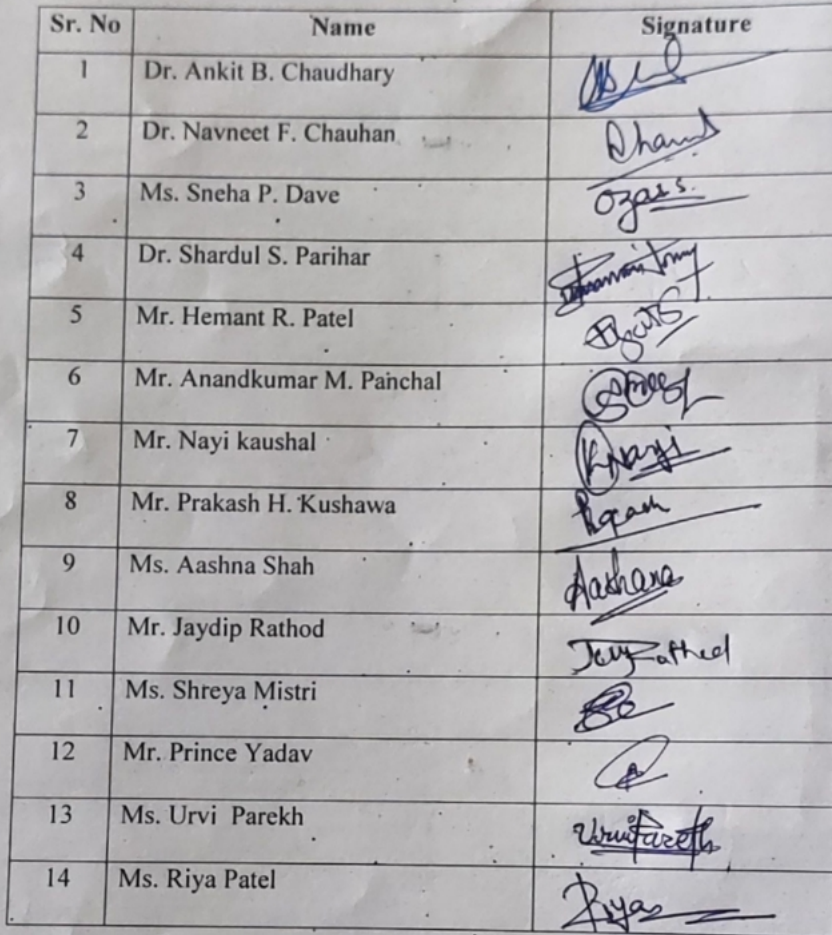 Sr. No Name Signature
1 Dr. Ankit B. Chaudhary
2 Dr. Navneet F. Chauhan
3 Ms. Sneha P. Dave
4 Dr. Shardul S. Parihar
5 Mr. Hemant R. Patel
6 Mr. Anandkumar M. Panchal
7 Mr. Nayi kaushal KNayi
8 Mr. Prakash H. Kushawa
9 Ms. Aashna Shah
10 Mr. Jaydip Rathod
11 Ms. Shreya Mistri
12 Mr. Prince Yadav
13 Ms. Urvi Parekh
14 Ms. Riya Patel Riya